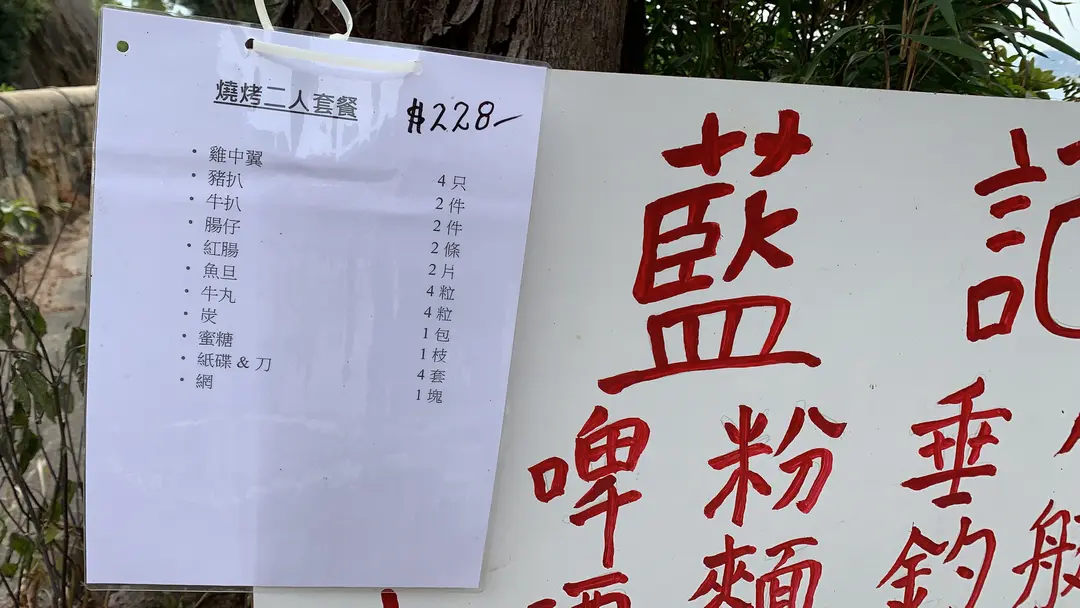 燒烤二人套餐 $228-
• 雞中翼 4 只
• 豬扒 2 件
• 牛扒 2 件
• 腸仔 2 條
• 紅腸 2 片
• 魚旦 4 粒
• 牛丸 4 粒
• 炭 1 包
• 蜜糖 1 枝
• 紙碟 & 刀 4 套
• 網 1 塊
藍記
啤 粉 垂
麵 釣